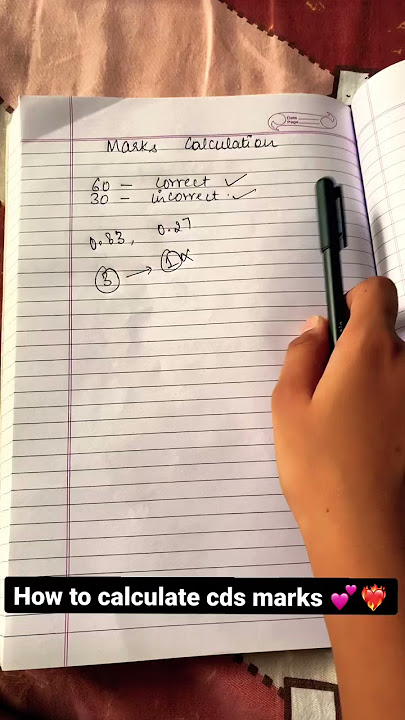 Date
Page
Marks Calculation
60 – correct ✓
30 – incorrect. ✓
0.83, 0.27
3 → 1 ×
How to calculate cds marks 💕❤️‍🔥